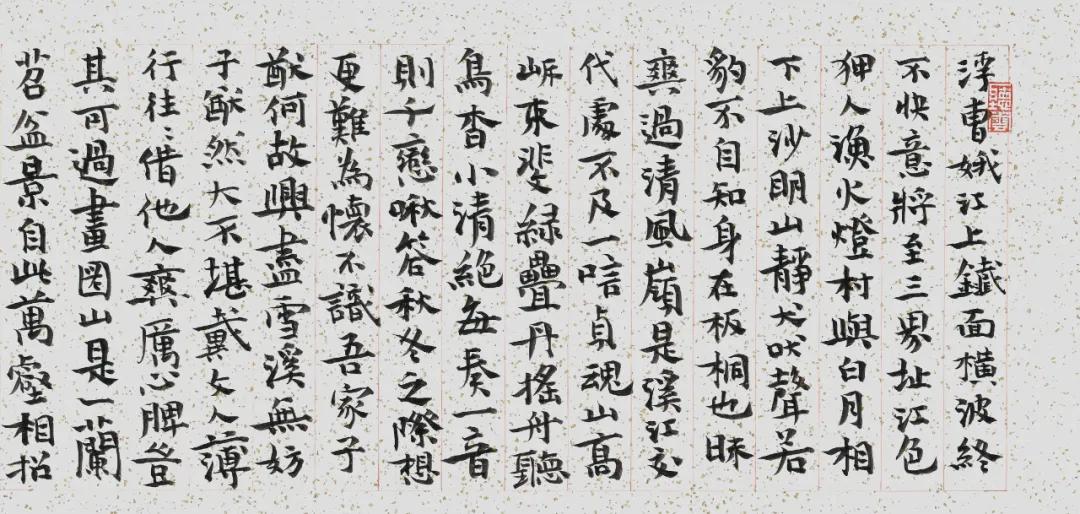 浮曹娥江上鐵面橫波終
不快意將至三界址江色
狎人漁火燈村與白月相
下上沙明山靜犬吠聲若
豹不自知身在板桐也昧
爽過清風嶺是溪江交
代處不及一唁貞魂山高
岸束斐綠疊丹搖舟聽
鳥杳小清絕每奏一音
則千巒啾答秋冬之際想
更難為懷不識吾家子
猷何故興盡雪溪無妨
子猷然大不堪戴文人薄
行往往借他人爽厲心脾豈
其可過畫圖山是一蘭
苕盆景自此萬壑相招